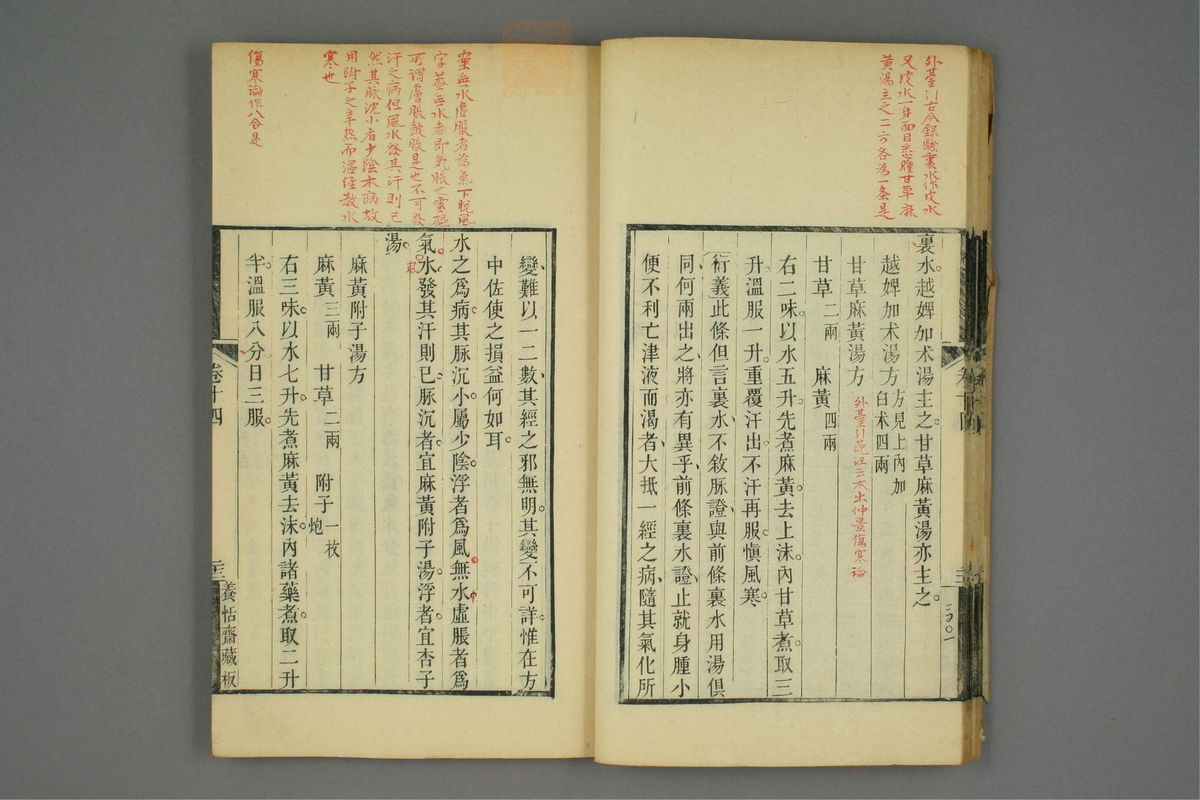 外臺引古今錄驗裏水作皮水
又皮水一身面目悉腫甘草麻
黃湯主之二方各為一条是
裏水越婢加术湯主之甘草麻黃湯亦主之
越婢加术湯方
方見上內加
白术四兩
甘草麻黃湯方
外臺引范汪云本出仲景傷寒論
甘草二兩 麻黃四兩
右二味以水五升先煮麻黃去上沫內甘草煮取三
升溫服一升重覆汗出不汗再服慎風寒
衍義此條但言裏水不敘脉證與前條裏水用湯俱
同何兩出之將亦有異乎前條裏水證止就身腫小
便不利亡津液而渴者大抵一經之病隨其氣化所
變難以一二數其經之邪無明其變不可詳惟在方
中佐使之損益何如耳
案無水虛脹者為氣下脫風
字蓋無水者即氣脹也靈樞
可謂膚脹鼓脹是也不可發
汗之病但風水發其汗則已
然其脉沈小者少陰本病故
用附子之辛熱而溫經散水
寒也
水之為病其脉沉小屬少陰浮者為風無水虛脹者為
氣水發其汗則已脉沉者宜麻黃附子湯浮者宜杏子
湯
麻黃附子湯方
麻黃三兩 甘草二兩 附子一枚炮
右三味以水七升先煮麻黃去沫內諸藥煮取二升
半溫服八分日三服
傷寒論作八合是
卷十四
養恬齋藏板